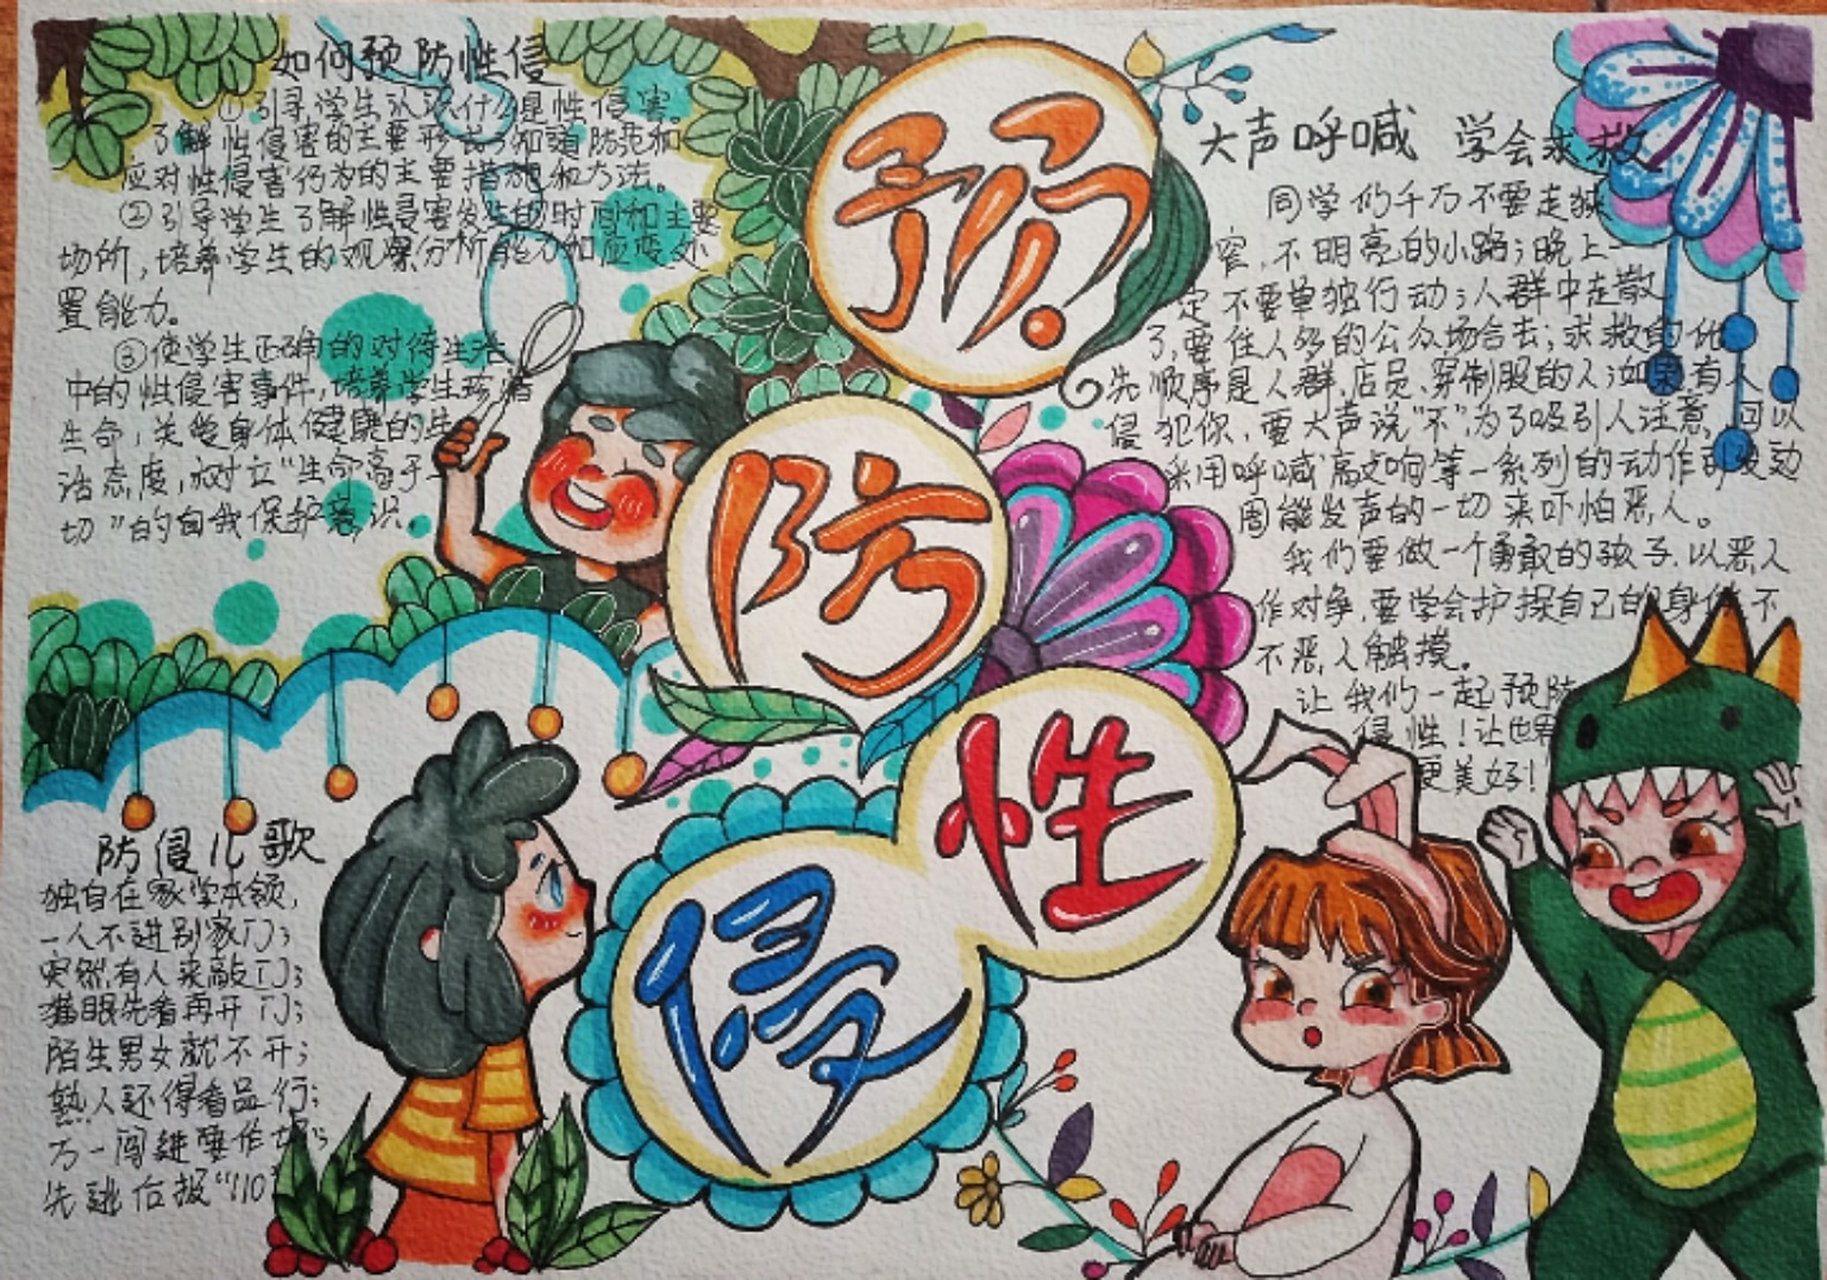 如何预防性侵
①引导学生认识什么是性侵害。
了解性侵害的主要形式,知道防范和
应对性侵害行为的主要措施和方法。
②引导学生了解性侵害发生的时间和主要
场所,培养学生的观察分析能力和应变处
置能力。
③使学生正确的对待生活
中的性侵害事件,培养学生珍惜
生命,关爱身体健康的生
活态度,树立“生命高于一
切”的自我保护意识。
预
防
性
侵
大声呼喊 学会求救
同学们千万不要走狭
窄,不明亮的小路;晚上一
定不要单独行动;人群中走散
了,要往人多的公众场合去;求救的优
先顺序是人群、店员、穿制服的人;如果有人
侵犯你,要大声说“不”,为了吸引人注意,可以
采用呼喊、高处响等一系列的动作引发边
周能发声的一切来吓怕恶人。
我们要做一个勇敢的孩子,以恶人
作对争,要学会护按自己的身体,不
不恶人触摸。
让我们一起预防
侵性!让世界
更美好!
防侵儿歌
独自在家学本领,
一人不进别家门;
突然有人来敲门;
猫眼先看再开门;
陌生男女就不开;
熟人还得看品行;
万一闯进要作
先逃后报“110”